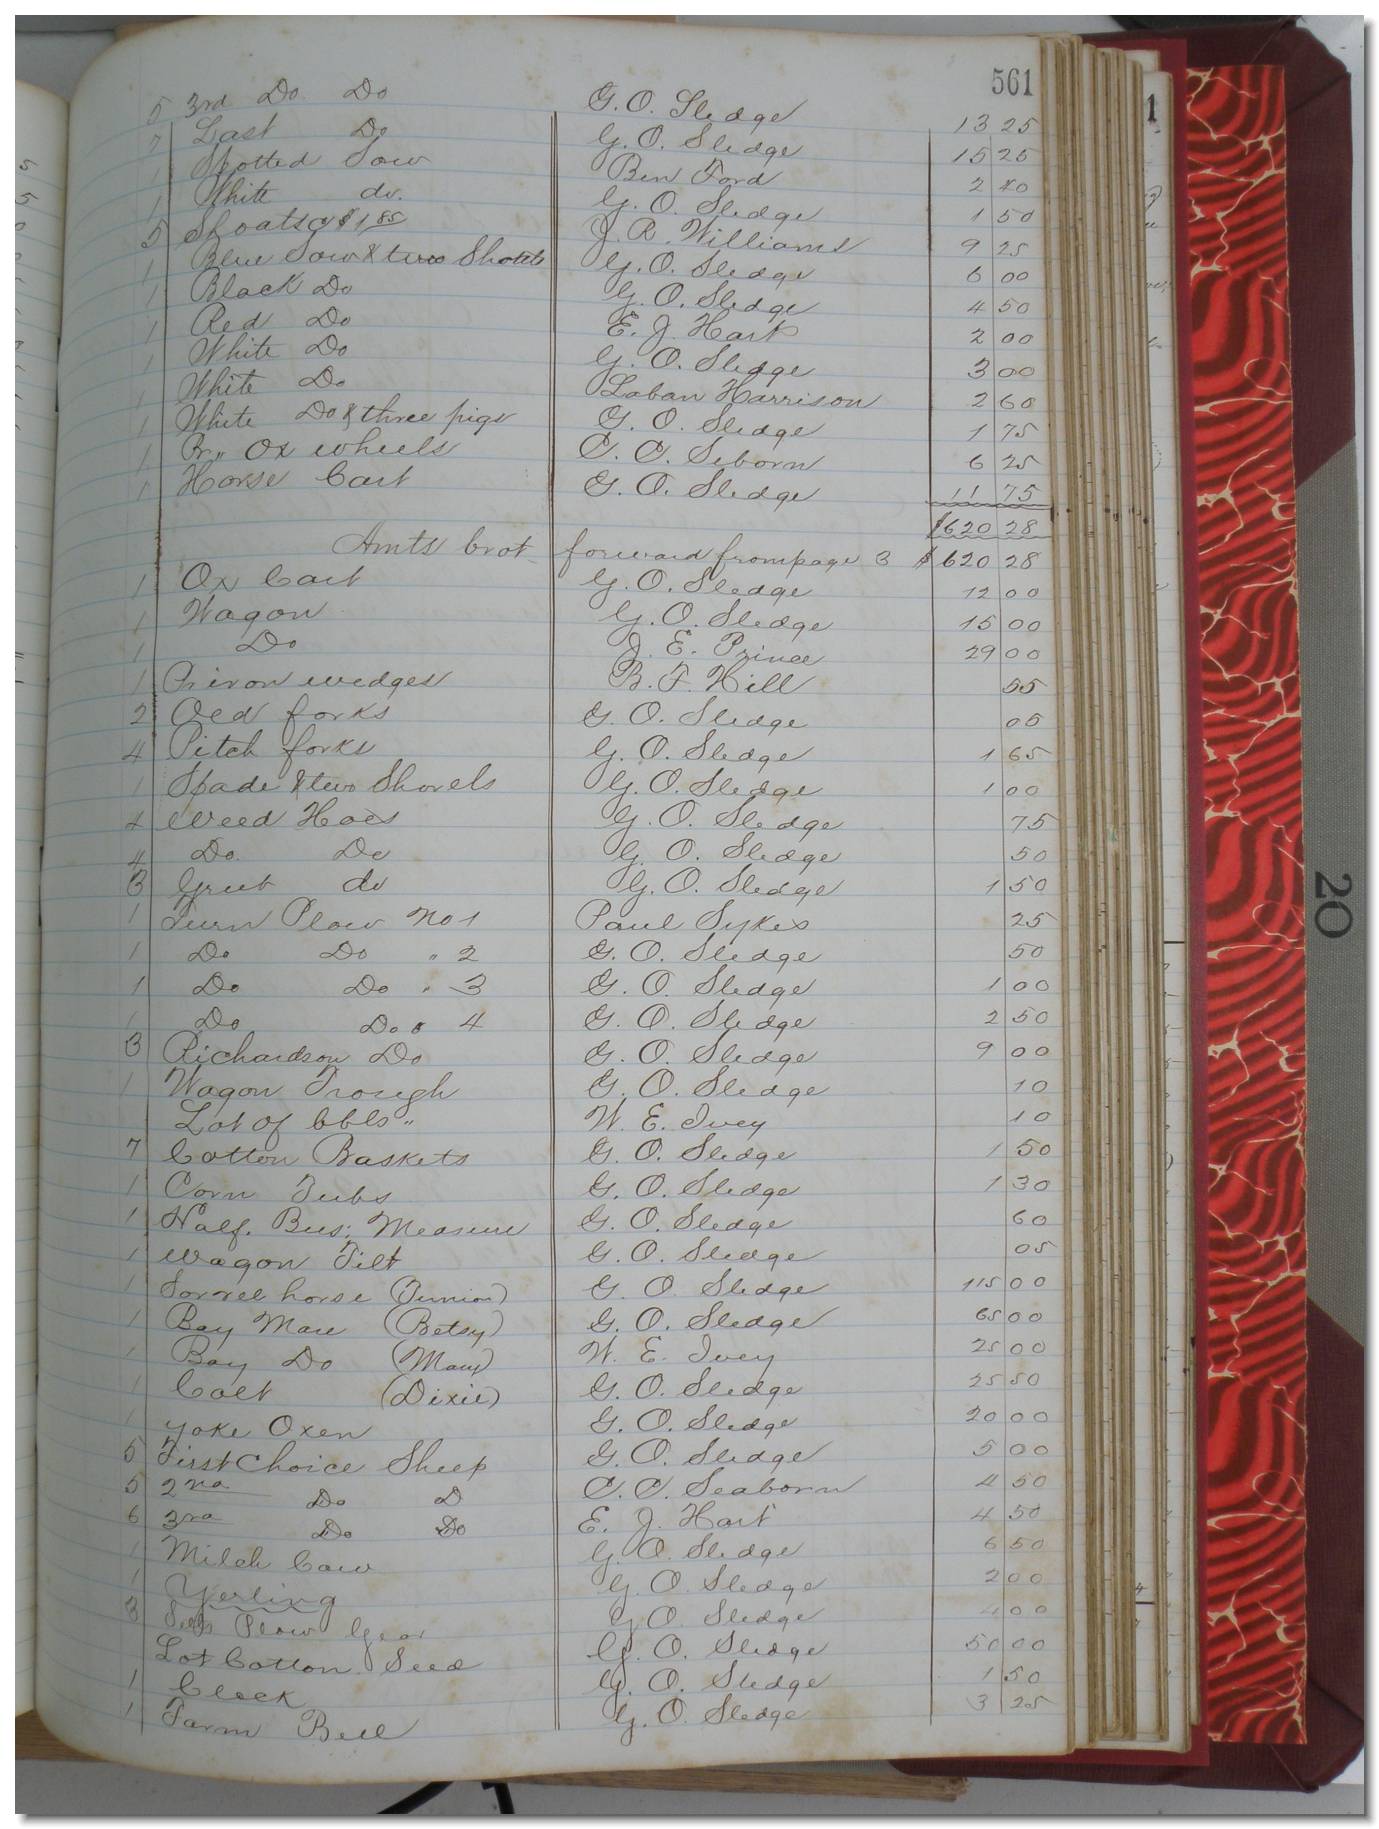 561
5 3rd Do Do G. O. Sledge 13 25
7 Last Do G. O. Sledge 15 25
1 Spotted Sow Ben Ford 2 40
1 White do. G. O. Sledge 1 50
5 Shoats @ $1.85 J. R. Williams 9 25
1 Blue Sow & two Shoats G. O. Sledge 6 00
1 Black Do G. O. Sledge 4 50
1 Red Do E. J. Hart 2 00
1 White Do G. O. Sledge 3 00
1 White Do Laban Harrison 2 60
1 White Do & three pigs G. O. Sledge 1 75
1 Pr,, Ox wheels C. C. Seborn 6 25
1 Horse Cart G. O. Sledge 11 75
$620 28
Amts brot forward from page 3 $620 28
1 Ox Cart G. O. Sledge 12 00
1 Wagon G. O. Sledge 15 00
1 Do J. E. Prince 29 00
1 Pr iron wedges B. F. Hill 55
2 Old forks G. O. Sledge 05
4 Pitch forks G. O. Sledge 1 65
1 Spade & two Shovels G. O. Sledge 1 00
4 Weed Hoes G. O. Sledge 75
4 Do. Do G. O. Sledge 50
3 Grub do G. O. Sledge 1 50
1 Turn Plow No 1 Paul Sykes 25
1 Do Do " 2 G. O. Sledge 50
1 Do Do " 3 G. O. Sledge 1 00
1 Do Do " 4 G. O. Sledge 2 50
3 Richardson Do G. O. Sledge 9 00
1 Wagon Trough G. O. Sledge 10
Lot of bbls " W. E. Ivey 10
7 Cotton Baskets G. O. Sledge 1 50
1 Corn Tubs G. O. Sledge 1 30
1 Half. Bus: Measure G. O. Sledge 60
1 Wagon Tilt G. O. Sledge 05
1 Sorrel horse (Junior) G. O. Sledge 115 00
1 Bay Mare (Betsy) G. O. Sledge 65 00
1 Bay Do (Mary) W. E. Ivey 25 00
1 Colt (Dixie) G. O. Sledge 25 50
1 Yoke Oxen G. O. Sledge 20 00
5 First Choice Sheep G. O. Sledge 5 00
5 2nd Do D C. C. Seaborn 4 50
6 3rd Do Do E. J. Hart 4 50
1 Milch Cow G. O. Sledge 6 50
1 Yerling G. O. Sledge 2 00
3 Sets Plow Gear G O. Sledge 4 00
Lot Cotton Seed G. O. Sledge 50 00
1 Clock G. O. Sledge 1 50
1 Farm Bell G. O. Sledge 3 25
1
20